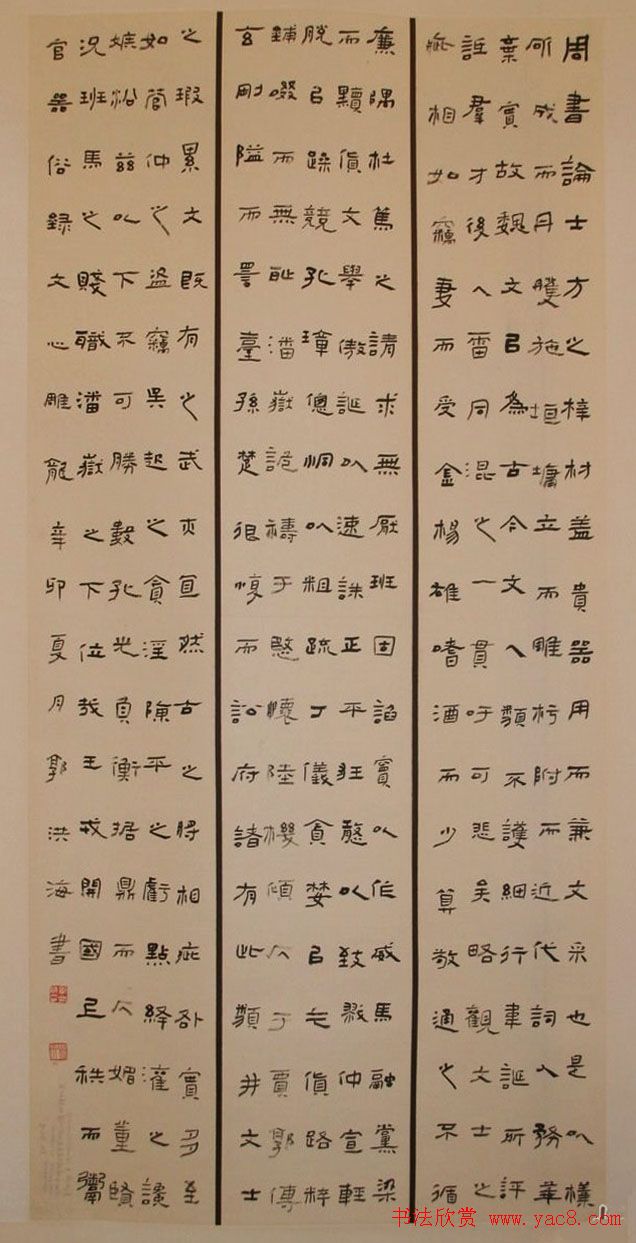 周書論士方之梓材蓋貴器用而兼文采也是以樸
斫成而丹雘施垣墉立而雕杇附而近代詞人務華
棄實故魏文㠯為古今文人類不護細行韋誕所評
詆羣才後人雷同混之一貫吁可悲矣略觀文士之
疵相如竊妻而受金楊雄嗜酒而少算敬通之不循
廉隅杜篤之請求無厭班固諂竇以作威馬融黨梁
而黷貨文舉傲誕以速誅正平狂憨以致戮仲宣輕
脫㠯躁競孔璋傯恫以粗疏丁儀貪婪㠯乞貨路粹
餔啜而無恥潘嶽詭禱于愍懷陸機傾仄于賈郭傅
玄剛隘而詈臺孫楚很愎而訟府諸有此類并文士
之瑕累文既有之武亦宜然古之將相疵咎實多至
如管仲之盜竊吳起之貪淫陳平之虧點絳灌之讒
嫉㳂茲以下不可勝數孔光負衡據鼎而仄媚董賢
況班馬之賤職潘嶽之下位哉王戎開國上秩而鬻
官嚣俗録文心雕龍辛卯夏月郭洪海書
书法欣赏 www.yac8.com